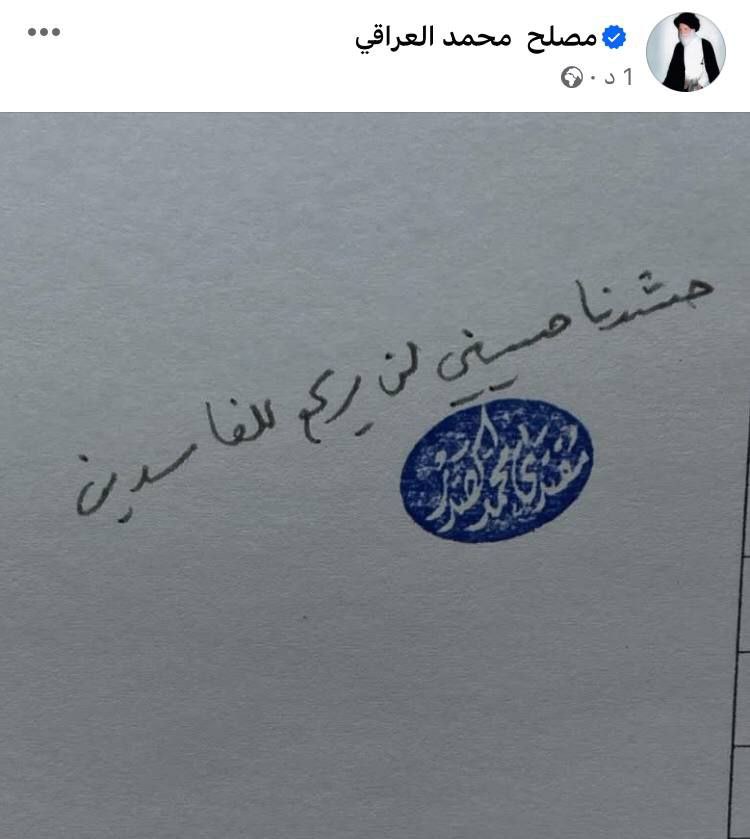 مصلح محمد العراقي
1 د ·
حشدنا حسيني لن يركع للفاسدين
مقتدى محمد الصدر